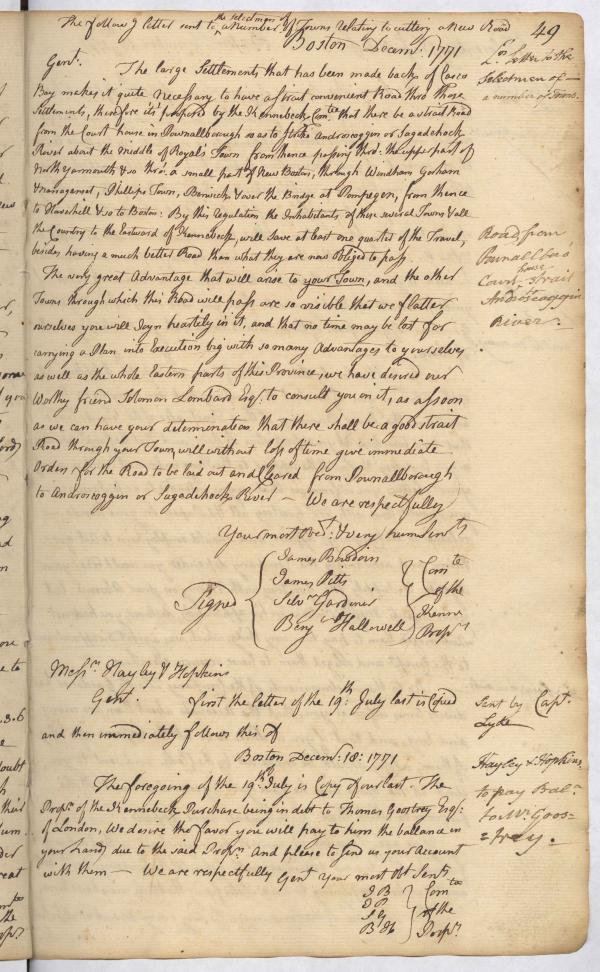 The follow.g letter sent to the selectmen of a Number of Towns relating to cutting a New Road
49
Boston Decem.r 1771
Gent.n The large Settlements that has been made back of Casco
Bay makes it quite necessary to have a strait convenient Road thro' those
Settlements, therefore its propos'd by the Kennebeck Com.tee that there be a strait Road
from the Court house in Pownallborough so as to strike Androscoggin or Sagadehock
River about the middle of Royal's Town from thence passing thro: the upper part of
North yarmouth & so thro: a small part of New Boston, through Windham Gorham
& Narraganset, Phillips Town, Berwick & over the Bridge at Pompegen, from thence
to Haverhill & so to Boston: By this Regulation the Inhabitants of those several Towns & all
the Country to the Eastward of Kennebeck, will save at least one quarter of the Travel,
besides having a much better Road than what they are now obliged to pass
The very great Advantage that will arise to your Town, and the other
Towns through which this Road will pass are so visible that we flatter
ourselves you will Joyn heartily in it, and that no time may be lost for
carrying a Plan into Execution big with so many Advantages to yourselves
as well as the whole Eastern parts of this Province, we have desired our
Worthy friend Solomon Lombard Esq.r to consult you on it, as assoon
as we can have your determination that there shall be a good strait
Road through your Town, will without loss of time give immediate
Orders for the Road to be laid out and Cleared from Pownallborough
to Androscoggin or Sagadehock River — We are respectfully
Your most Obed.t & very hum Serv.ts
Signed
James Bowdoin
James Pitts
Silv.r Gardiner
Benj.n Hallowell
Com.tee
of the
Kenne
Prop.rs
L.rs Letter to the
Selectmen of
a number of Towns.
Road from
Pownallbo.o
Court house Strait
Androscoggin
River.
Mess.rs Hayley & Hopkins
Gent. first the letter of the 19.th July last is Copied
and then immediately follows this
Boston Decem.r 18: 1771
The foregoing of the 19.th July is Copy of our last. The
Prop.rs of the Kennebeck Purchase being in debt to Thomas Goostrey Esq.r
of London, We desire the favor you will pay to him the ballance in
your hands due to the said Prop.rs And please to send us your Account
with them — We are respectfully Gent.n Your most Ob.t Serv.ts
J B
J P
S G
B H
Com.tee
of the
Prop.rs
Sent by Capt.
Lyde
Hayley & Hopkins
to pay Bal.
to Mr. Goos-
=trey.